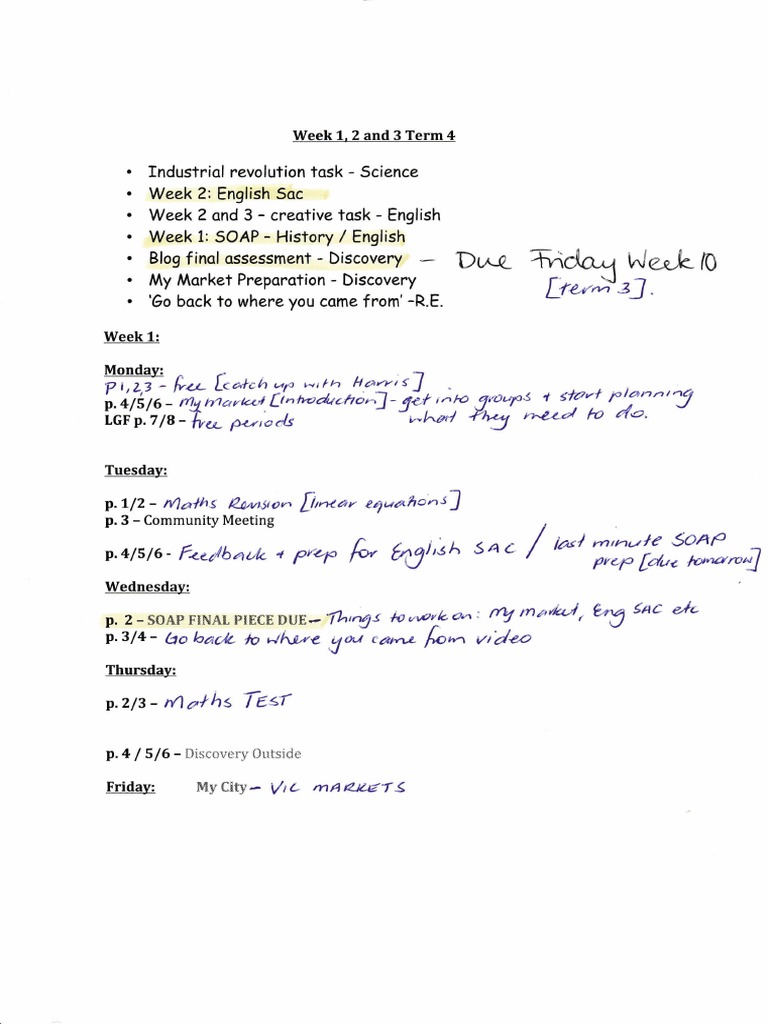 Week 1, 2 and 3 Term 4
• Industrial revolution task - Science
• Week 2: English Sac
• Week 2 and 3 – creative task - English
• Week 1: SOAP – History / English
• Blog final assessment - Discovery — Due Friday Week 10
• My Market Preparation - Discovery [term 3].
• ‘Go back to where you came from’ –R.E.
Week 1:
Monday:
P1,2,3 - free [catch up with Harris]
p. 4/5/6 – My market [Introduction] - get into groups + start planning
LGF p. 7/8 – free periods what they need to do.
Tuesday:
p. 1/2 – Maths Revision [linear equations]
p. 3 – Community Meeting
p. 4/5/6 - Feedback + prep for English SAC / last minute SOAP
prep [due tomorrow]
Wednesday:
p. 2 – SOAP FINAL PIECE DUE — Things to work on: my market, Eng SAC etc
p. 3/4 – Go back to where you came from video
Thursday:
p. 2/3 – Maths TEST
p. 4 / 5/6 – Discovery Outside
Friday: My City — VIC MARKETS